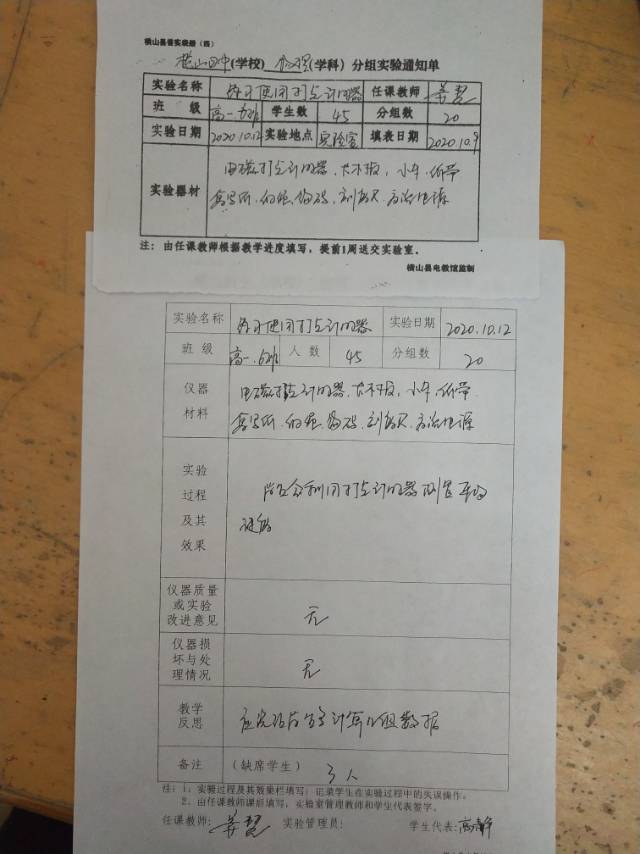 横山县普实表册（四）
横山四中(学校) 物理(学科) 分组实验通知单
实验名称 练习使用打点计时器 任课教师
班 级 高一.6班 学生数 45 分组数 20
实验日期 2020.10.12 实验地点 实验室 填表日期 2020.10.9
实验器材 电磁打点计时器、长木板、小车、纸带
复写纸、细绳、钩码、刻度尺、交流电源
注：由任课教师根据教学进度填写，提前1周送交实验室。
横山县电教馆监制
实验名称 练习使用打点计时器 实验日期 2020.10.12
班 级 高一.6班 人 数 45 分组数 20
仪器 电磁打点计时器、长木板、小车、纸带
材料 复写纸、细绳、钩码、刻度尺、交流电源
实验
过程 学生会利用打点计时器测量平均
及其 速度
效果
仪器质量
或实验
改进意见 无
仪器损
坏与处
理情况 无
教学
反思 计算几组数据
备注 （缺席学生） 3人
注：1、实验过程及其效果栏填写：记录学生在实验过程中的失误操作。
2、由任课教师课后填写，实验室管理教师和学生代表签字。
任课教师: 实验管理员: 学生代表: